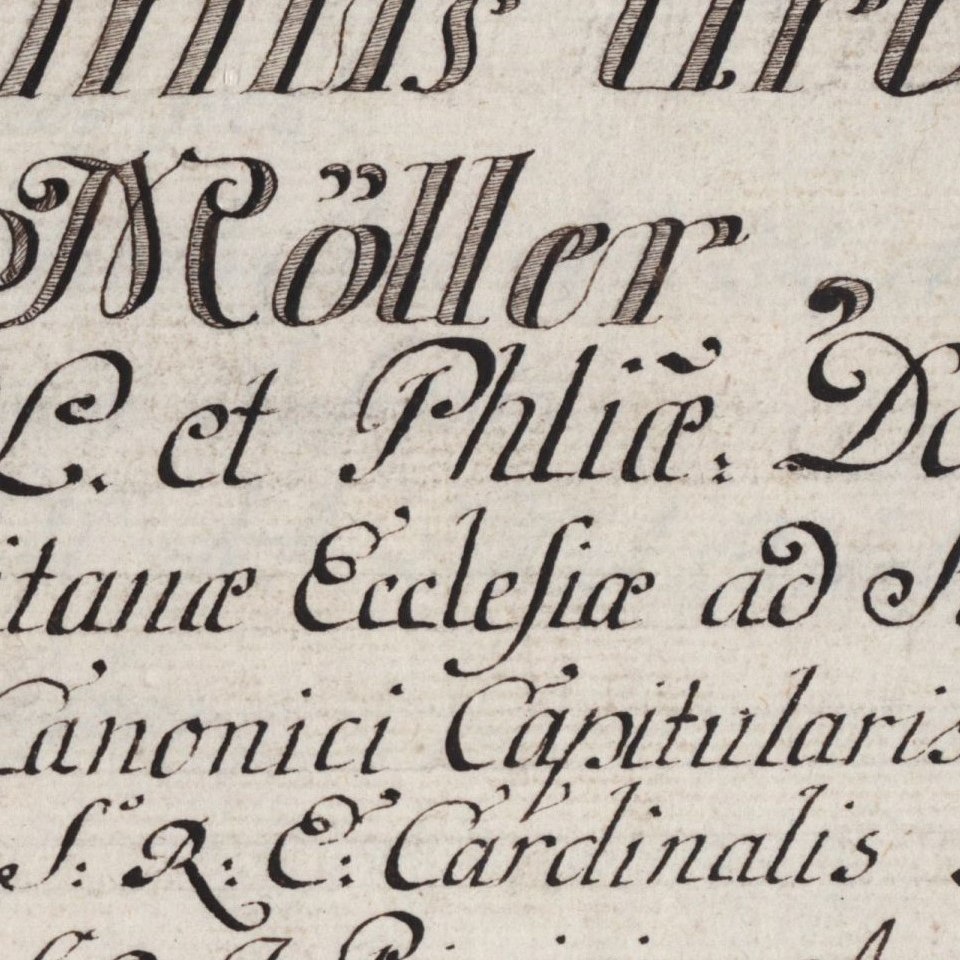 Möller,
L. et Phliæ: Do
itanæ Eccleſiæ ad S.
Canonici Capitularis
S: R: E: Cardinalis